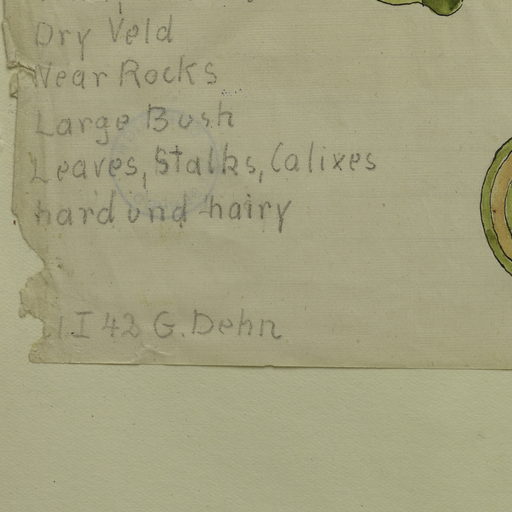 Dry Veld
Near Rocks
Large Bush
Leaves, Stalks, Calixes
hard und hairy
1 I 42 G. Dehn